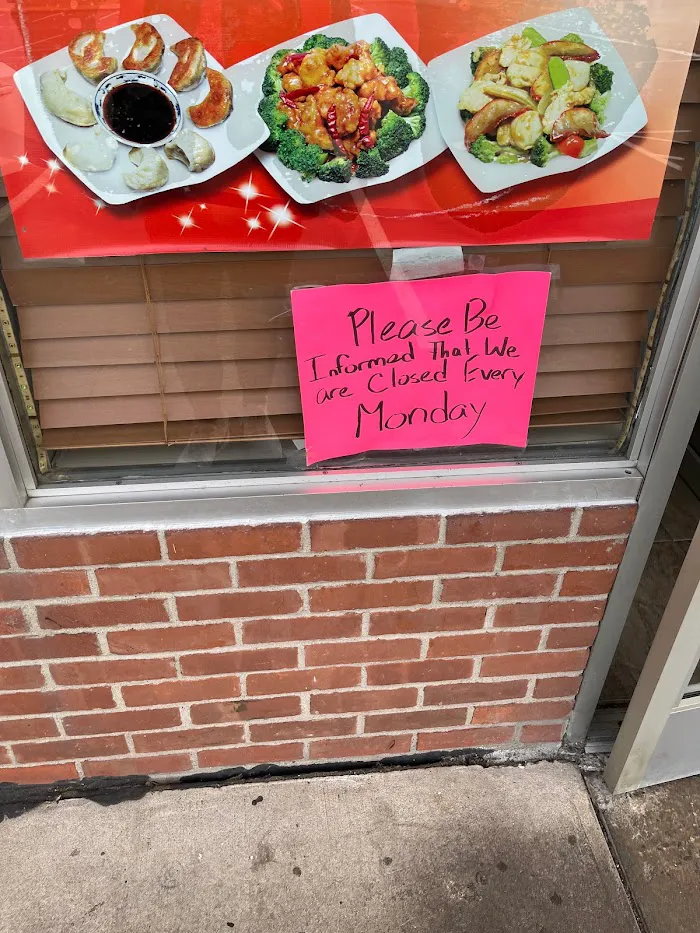 Please Be
Informed That We
are Closed Every
Monday